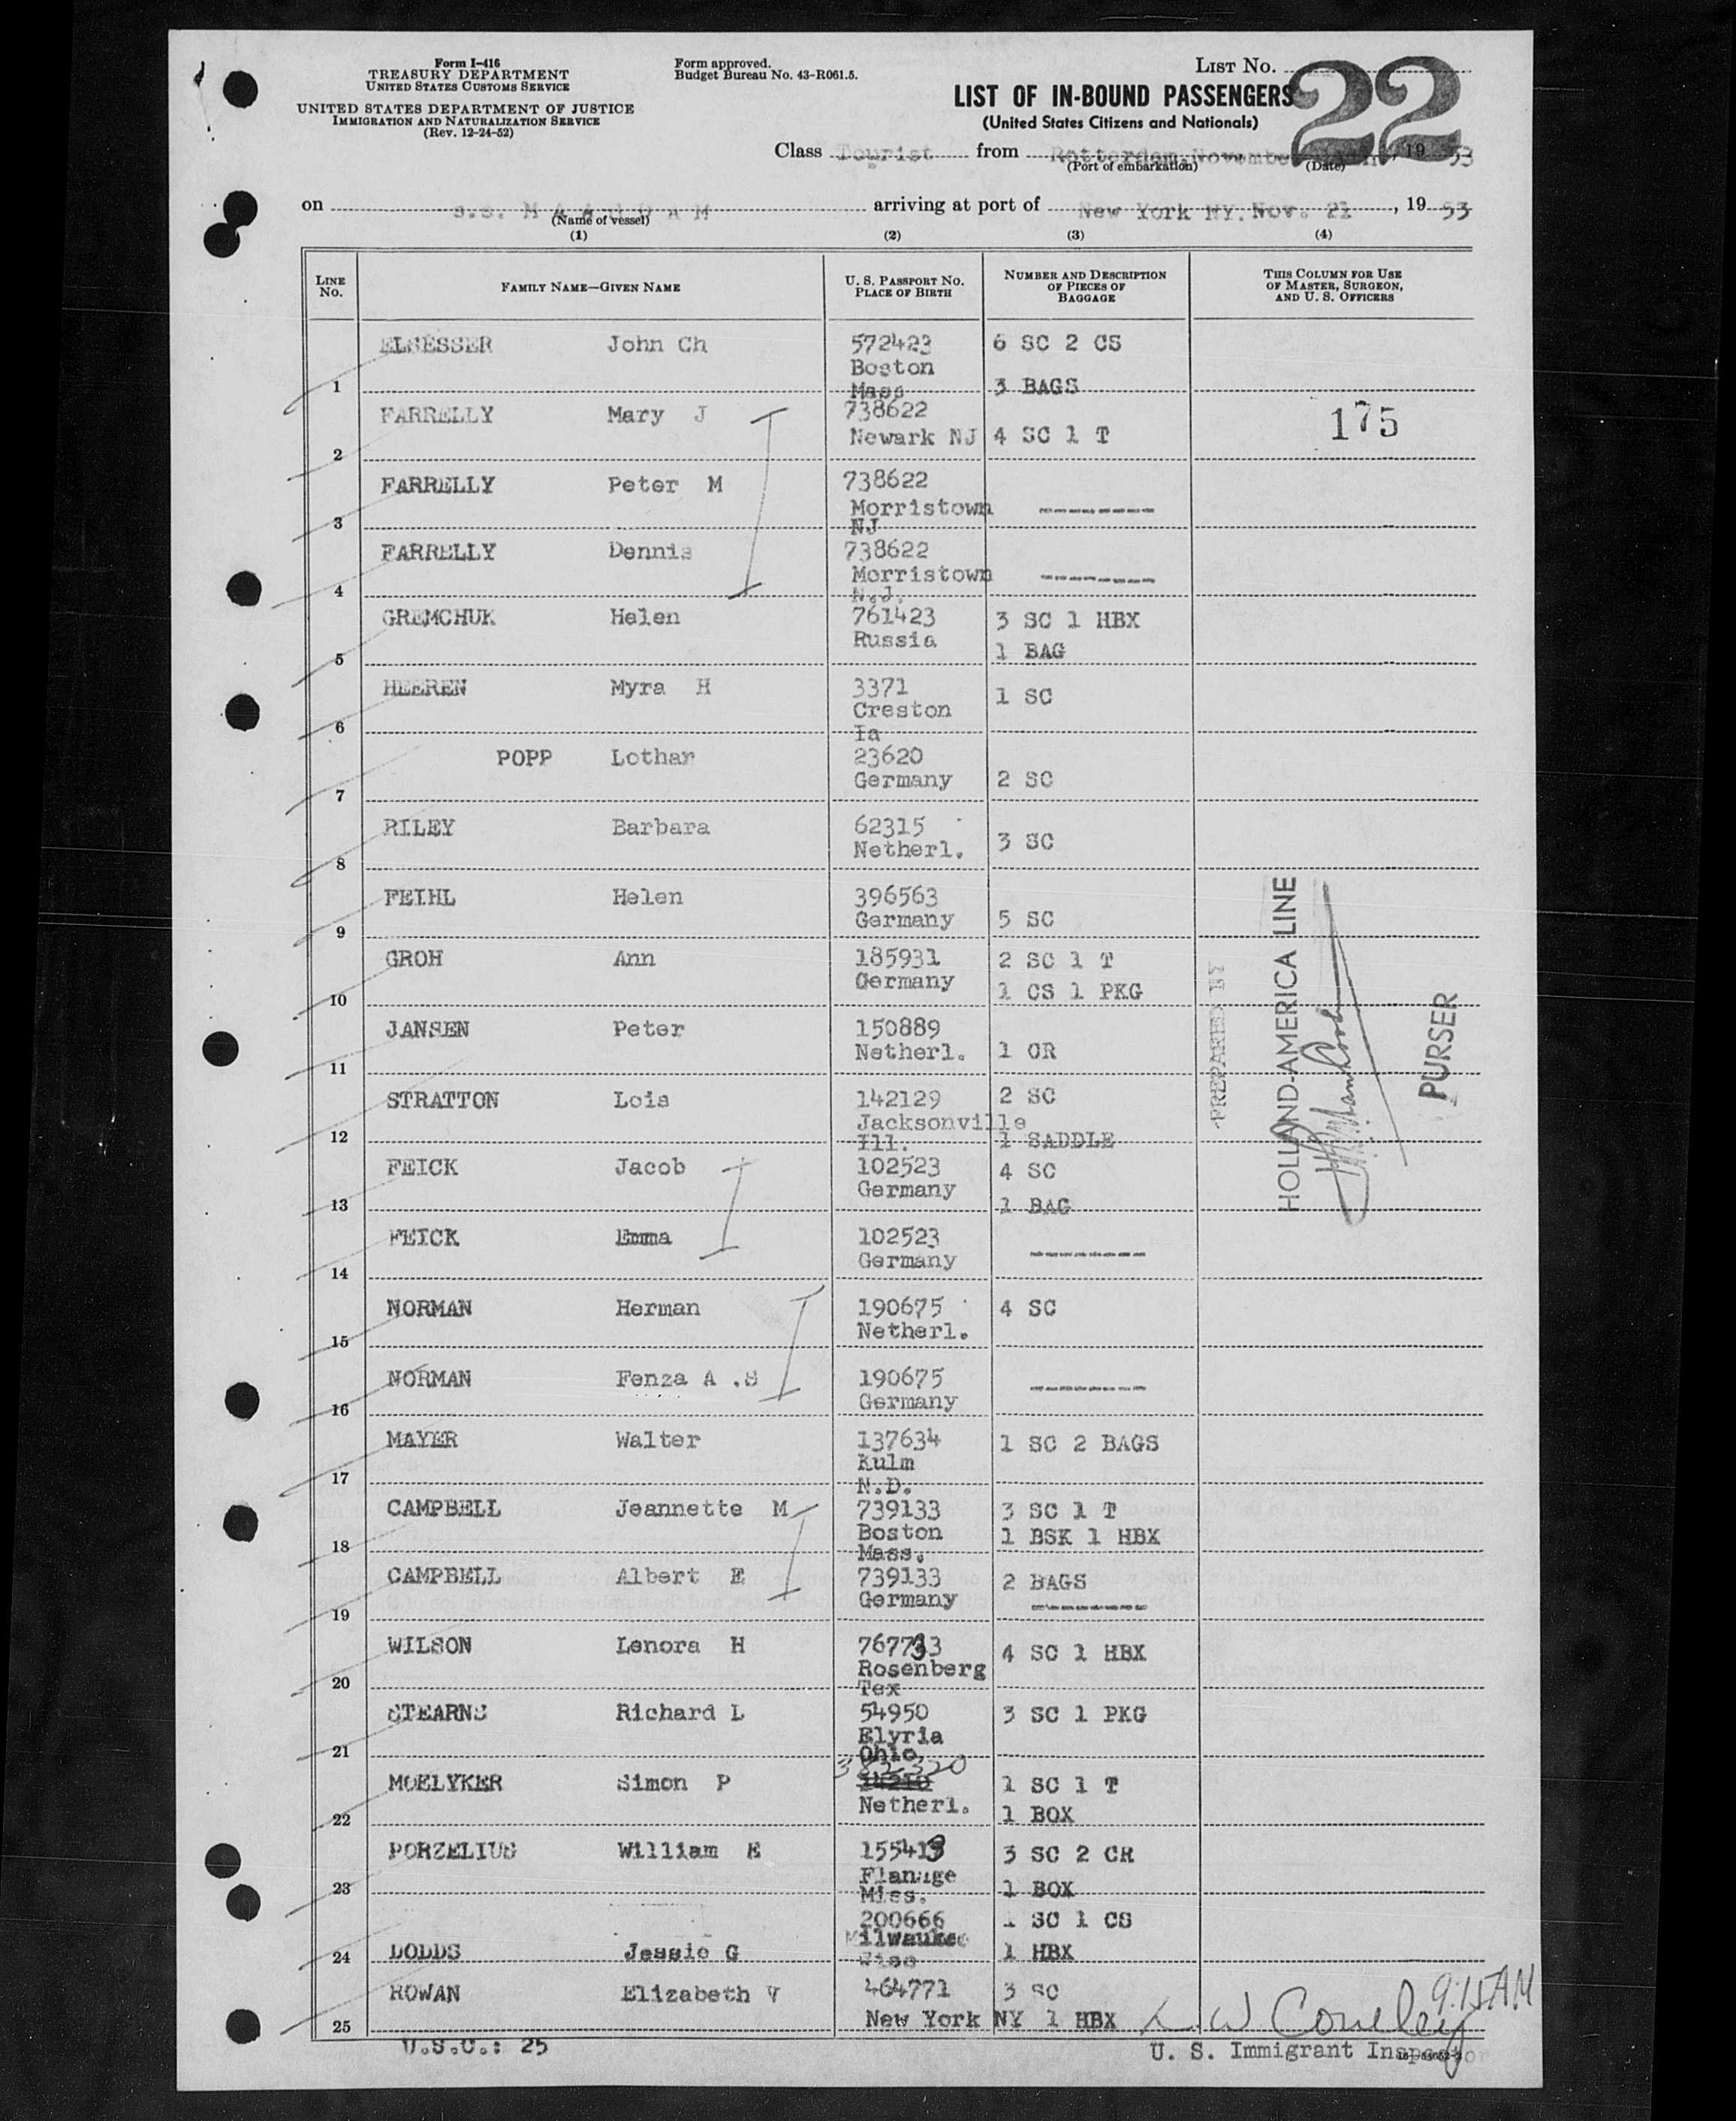 Form I-416
TREASURY DEPARTMENT
UNITED STATES CUSTOMS SERVICE
UNITED STATES DEPARTMENT OF JUSTICE
IMMIGRATION AND NATURALIZATION SERVICE
(Rev. 12-24-52)
Form approved.
Budget Bureau No. 43-R061.5.
LIST No. 22
LIST OF IN-BOUND PASSENGERS
(United States Citizens and Nationals)
Class Tourist from Rotterdam, November , 19 53
(Port of embarkation) (Date)
on s.s. M A A S D A M arriving at port of New York NY. Nov. 21 , 19 53
(Name of vessel)
(1) (2) (3) (4)
LINE NO. FAMILY NAME—GIVEN NAME U. S. PASSPORT NO. PLACE OF BIRTH NUMBER AND DESCRIPTION OF PIECES OF BAGGAGE THIS COLUMN FOR USE OF MASTER, SURGEON, AND U. S. OFFICERS
ELSESSER John Ch 572423 6 SC 2 CS
Boston
1 Mass 3 BAGS
FARRELLY Mary J 738622 175
2 Newark NJ 4 SC 1 T
FARRELLY Peter M 738622
Morristown -------
3 NJ
FARRELLY Dennis 738622
Morristown -------
4 N.J.
GREMCHUK Helen 761423 3 SC 1 HBX
5 Russia 1 BAG
HEEREN Myra H 3371 1 SC
Creston
6 Ia
POPP Lothar 23620
7 Germany 2 SC
RILEY Barbara 62315
8 Netherl. 3 SC
FEIHL Helen 396563
9 Germany 5 SC
GROH Ann 185931 2 SC 1 T
10 Germany 1 CS 1 PKG
JANSEN Peter 150889
11 Netherl. 1 CR
STRATTON Lois 142129 2 SC
Jacksonville
12 Ill. 1 SADDLE
FEICK Jacob 102523 4 SC
13 Germany 1 BAG
FEICK Emma 102523
14 Germany -------
NORMAN Herman 190675 4 SC
15 Netherl.
NORMAN Fenza A .S 190675
16 Germany -------
MAYER Walter 137634 1 SC 2 BAGS
Kulm
17 N.D.
CAMPBELL Jeannette M 739133 3 SC 1 T
Boston 1 BSK 1 HBX
18 Mass.
CAMPBELL Albert E 739133 2 BAGS
19 Germany -------
WILSON Lenora H 767733 4 SC 1 HBX
Rosenberg
20 Tex
STEARNS Richard L 54950 3 SC 1 PKG
Elyria
21 Ohio.
382320
MOELYKER Simon P 1 SC 1 T
22 Netherl. 1 BOX
PORZELIUS William E 155413 3 SC 2 CR
23 Miss. 1 BOX
200666 1 SC 1 CS
24 DODDS Jessie G Milwaukee Wisc 1 HBX
ROWAN Elizabeth V 464771 3 SC
25 New York NY 1 HBX
PREPARED BY
HOLLAND-AMERICA LINE
PURSER
U.S.C.: 25
9:15 AM
U. S. Immigrant Inspector